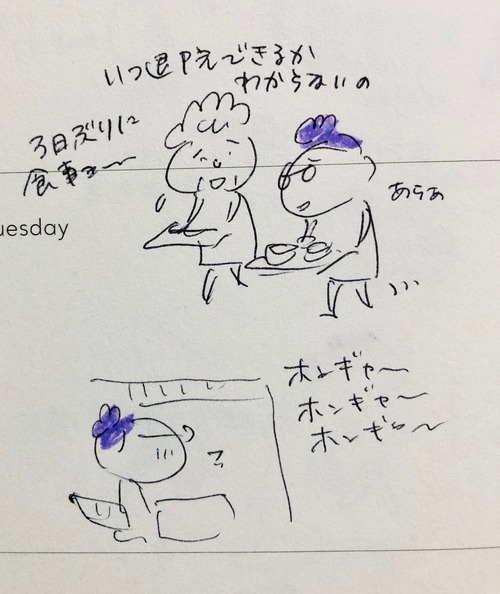 いつ退院できるか
わからないの
3日ぶりに
食事よ〜
あらぁ
uesday
ホンギャ〜
ホンギャ〜
ホンギャ〜